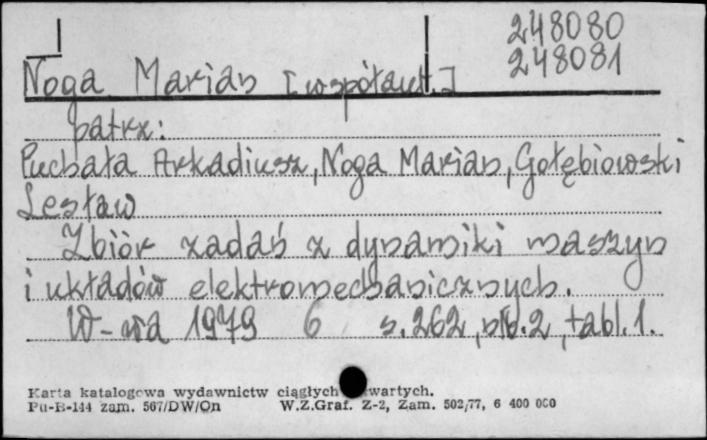 248080
248081
Noga Marian [współaut.]
patrz:
Puchała Arkadiusz, Noga Marian, Gołębiowski
Lesław
Zbiór zadań z dynamiki maszyn
i układów elektromechanicznych.
W-wa 1979 6 s. 262, nlb. 2, tabl. 1.
Karta katalogowa wydawnictw ciągłych wartych.
Pu-B-144 zam. 567/DW/On W.Z.Graf. Z-2, Zam. 502/77, 6 400 000